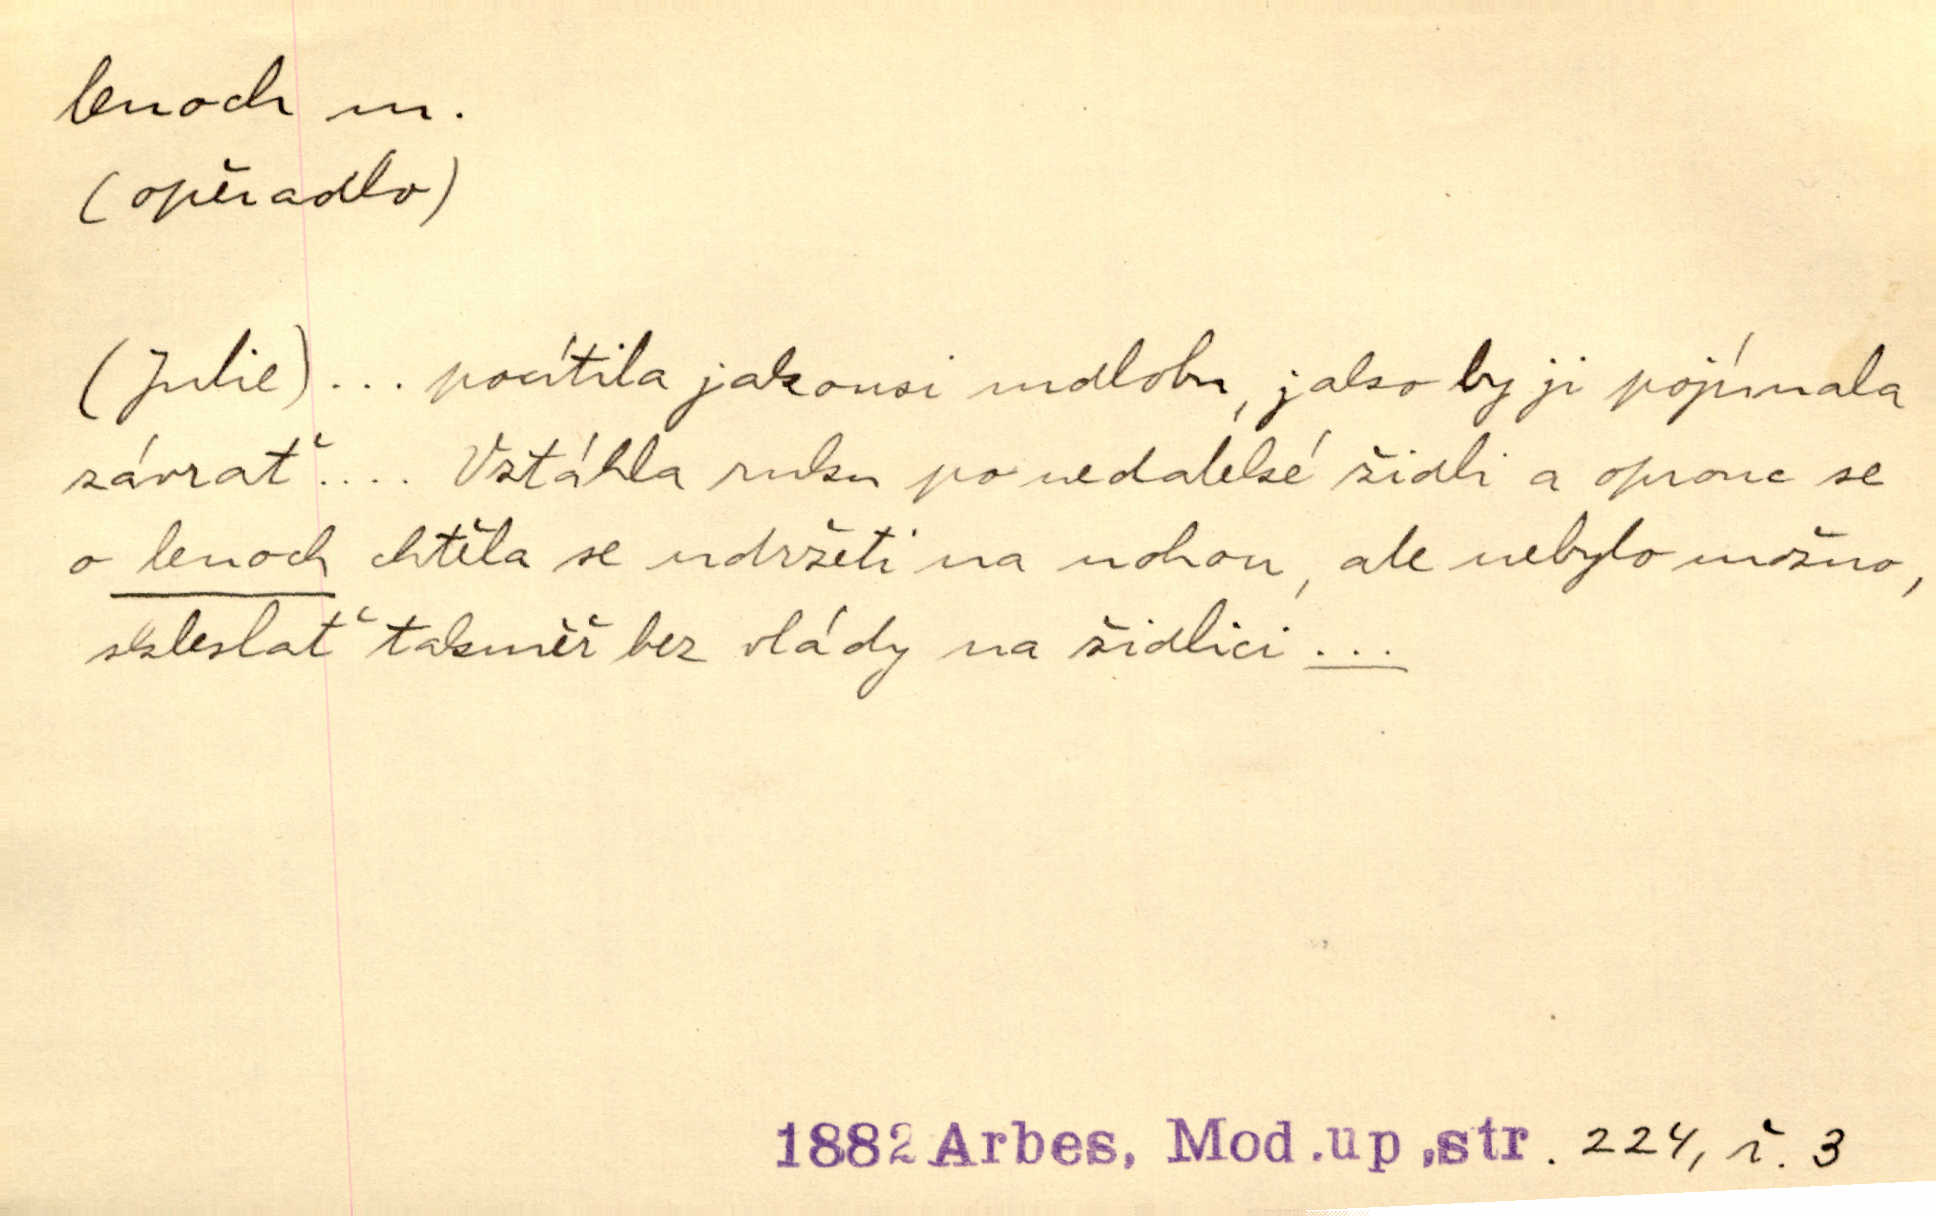 lenoch m.
(opěradlo)
(Julie)... pocítila jakousi mdlobu, jako by ji pojímala
závrať.... Vztáhla ruku po nedaleké židli a opřouc se
o lenoch chtěla se udržeti na nohou, ale nebylo možno,
sklesлať takměř bez vlády na židlici...
1882 Arbes, Mod.up.str. 224, ř. 3